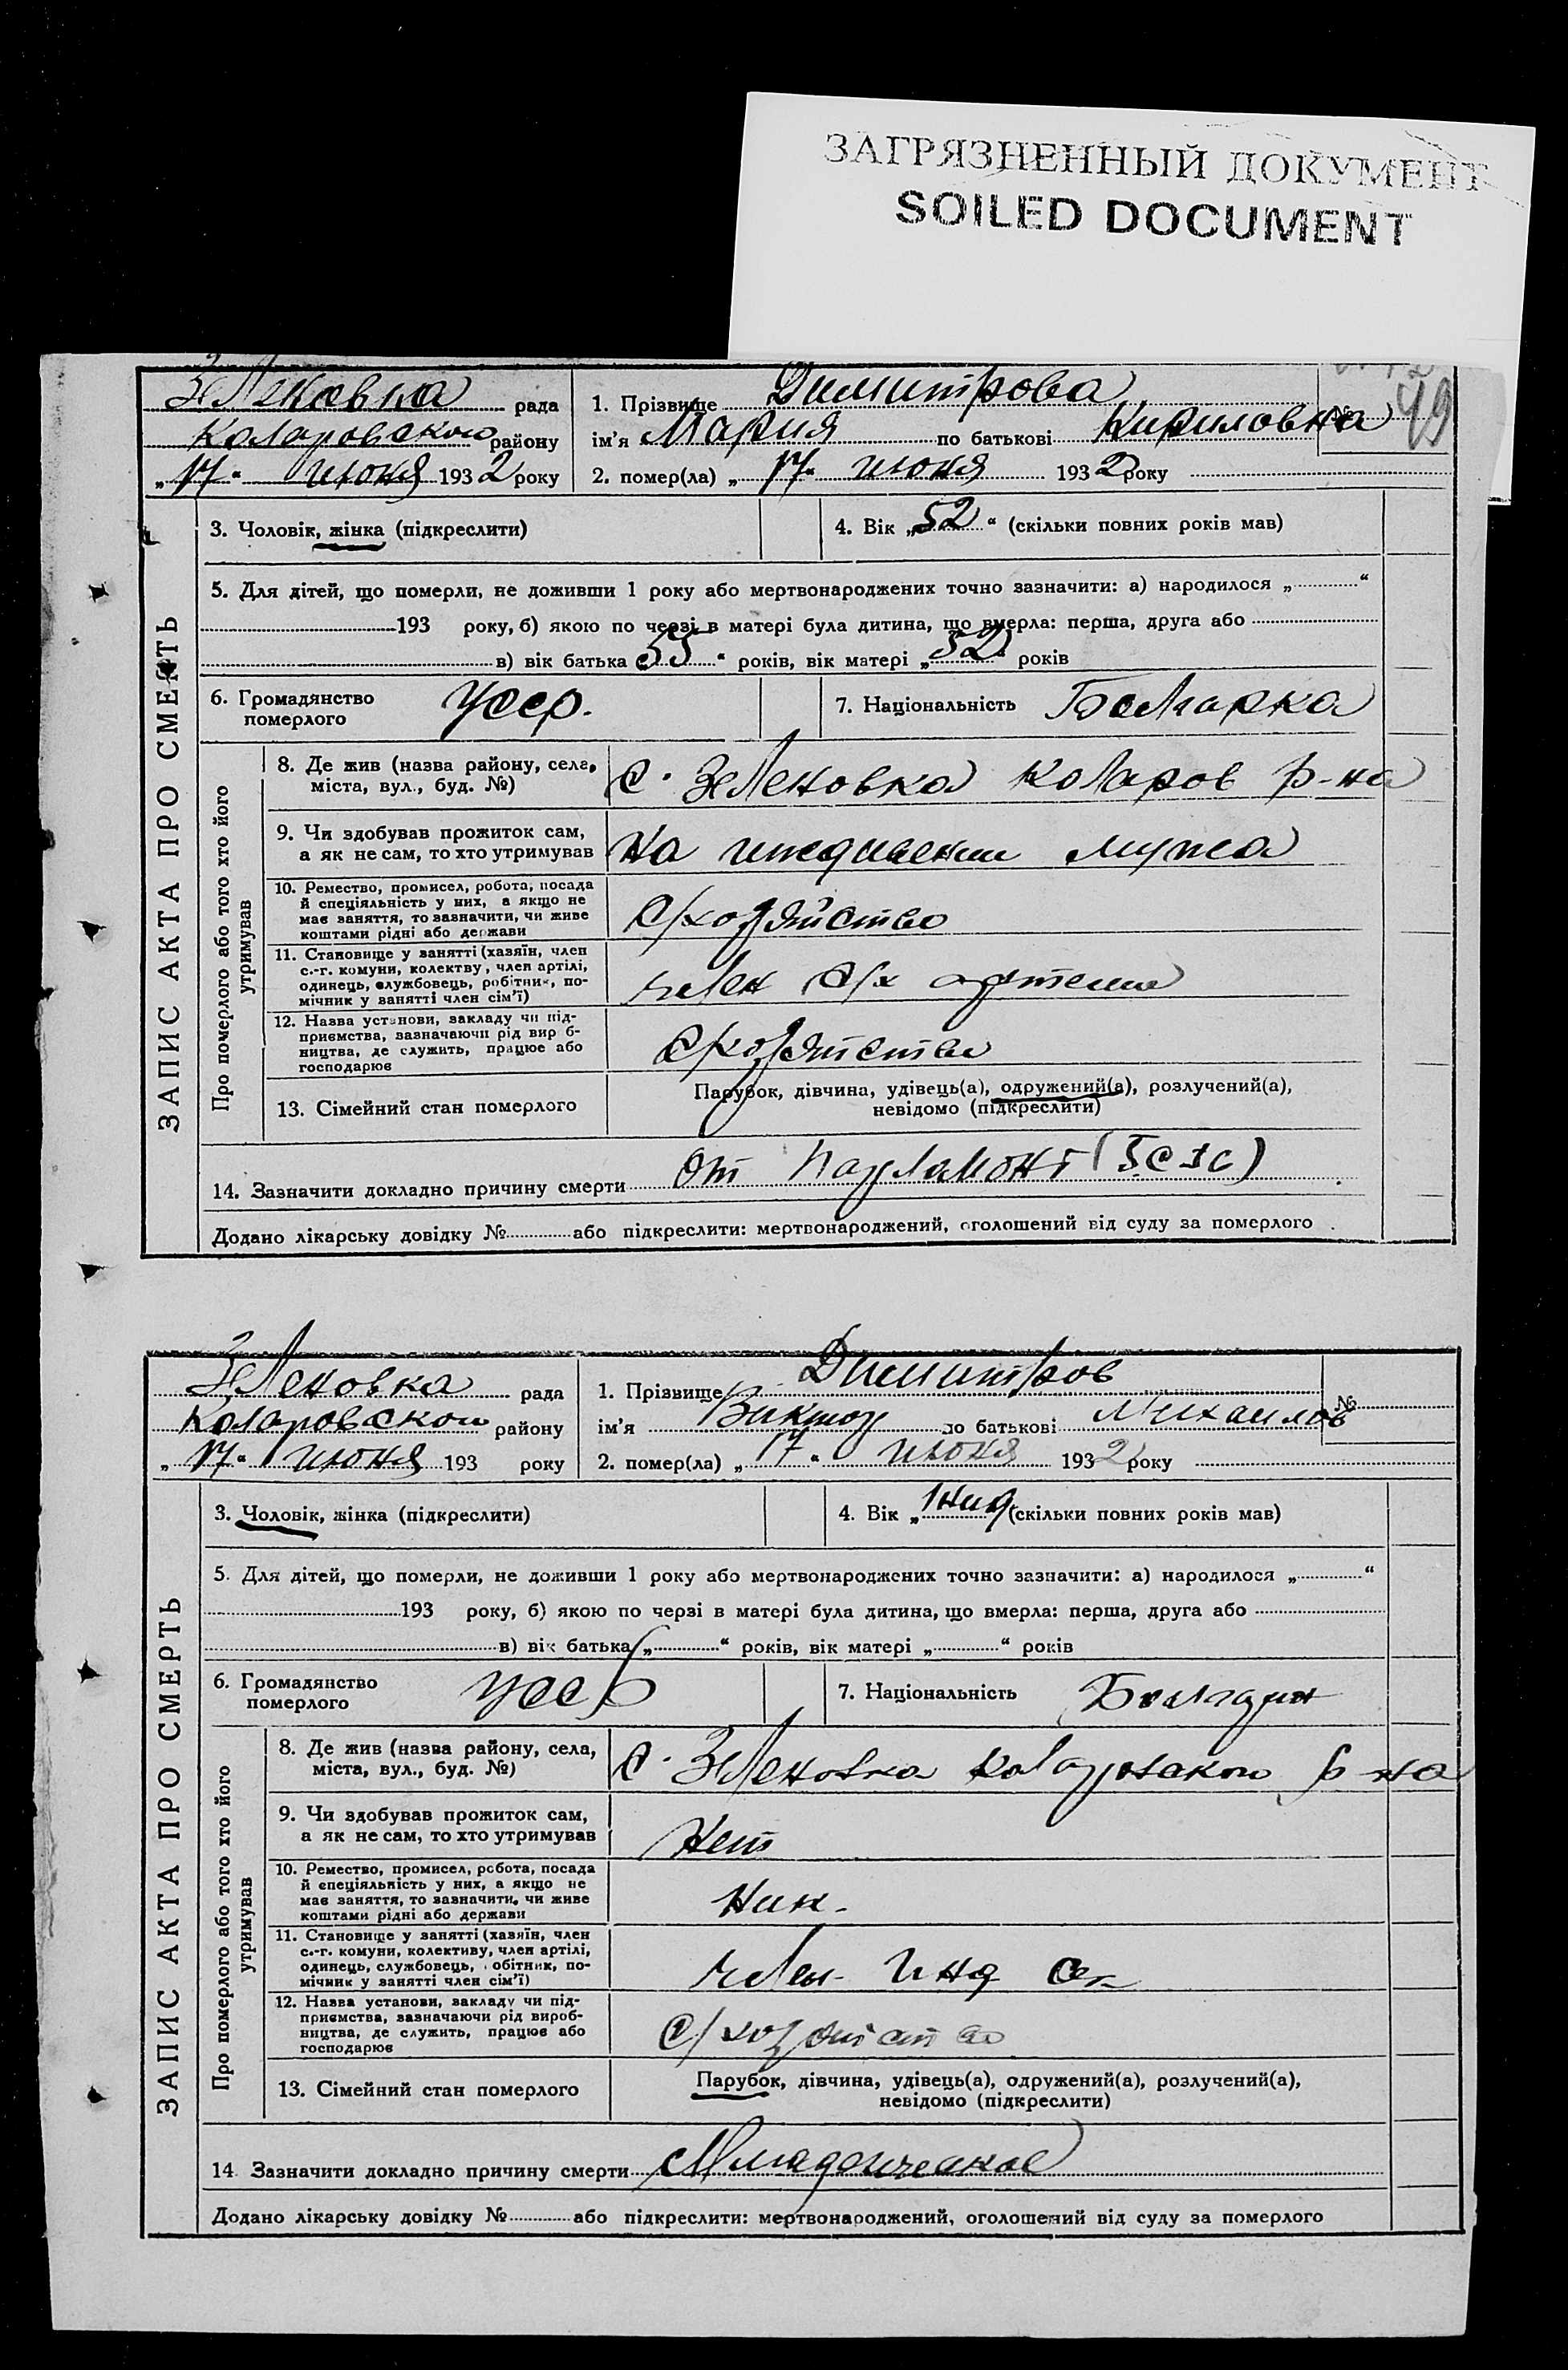 ЗАГРЯЗНЕННЫЙ ДОКУМЕНТ
SOILED DOCUMENT
49
ЗАПИС АКТА ПРО СМЕРТЬ
Зеленовка рада
Коларовского району
„17“ июня 1932 року
1. Прізвище Димитрова №
ім'я Мария по батькові Кириловна
2. помер(ла) „17“ июня 1932 року
3. Чоловік, жінка (підкреслити)
4. Вік „52“ (скільки повних років мав)
5. Для дітей, що померли, не доживши 1 року або мертвонароджених точно зазначити: а) народилося „ “
193 року, б) якою по черзі в матері була дитина, що вмерла: перша, друга або
в) вік батька „55“ років, вік матері „52“ років
6. Громадянство померлого Усср.
7. Національність Болгарка
Про померлого або того хто його утримував
8. Де жив (назва району, села, міста, вул., буд. №) с. Зеленовка Коларов р-на
9. Чи здобував прожиток сам, а як не сам, то хто утримував На иждивении мужа
10. Ремество, промисел, робота, посада й спеціяльність у них, а якщо не має заняття, то зазначити, чи живе коштами рідні або держави С/хозяйство
11. Становище у занятті (хазяїн, член с.-г. комуни, колектву, член артілі, одинець, службовець, робітник, помічник у занятті член сім'ї) член с/х артели
12. Назва установи, закладу чи підприємства, зазначаючи рід виробництва, де служить, працює або господарює С/хозяйство
13. Сімейний стан померлого Парубок, дівчина, удівець(а), одружений(а), розлучений(а),
невідомо (підкреслити)
14. Зазначити докладно причину смерти От
Додано лікарську довідку № або підкреслити: мертвонароджений, оголошений від суду за померлого
ЗАПИС АКТА ПРО СМЕРТЬ
Зеленовка рада
Коларовского району
„17“ июня 193 року
1. Прізвище Димитров №
ім'я Виктор по батькові Михаилов
2. помер(ла) „17“ июня 1932 року
3. Чоловік, жінка (підкреслити)
4. Вік „1 нид (скільки повних років мав)
5. Для дітей, що померли, не доживши 1 року або мертвонароджених точно зазначити: а) народилося „ “
193 року, б) якою по черзі в матері була дитина, що вмерла: перша, друга або
в) вік батька „ “ років, вік матері „ “ років
6. Громадянство померлого Усср
7. Національність Болгарин
Про померлого або того хто його утримував
8. Де жив (назва району, села, міста, вул., буд. №) с. Зеленовка Коларовского р-на
9. Чи здобував прожиток сам, а як не сам, то хто утримував Нет
10. Ремество, промисел, робота, посада й спеціяльність у них, а якщо не має заняття, то зазначити, чи живе коштами рідні або держави
11. Становище у занятті (хазяїн, член с.-г. комуни, колективу, член артілі, одинець, службовець, робітник, помічник у занятті член сім'ї) член инд
12. Назва установи, закладу чи підприємства, зазначаючи рід виробництва, де служить, працює або господарює С/хозяйство
13. Сімейний стан померлого Парубок, дівчина, удівець(а), одружений(а), розлучений(а),
невідомо (підкреслити)
14. Зазначити докладно причину смерти Младенческое
Додано лікарську довідку № або підкреслити: мертвонароджений, оголошений від суду за померлого